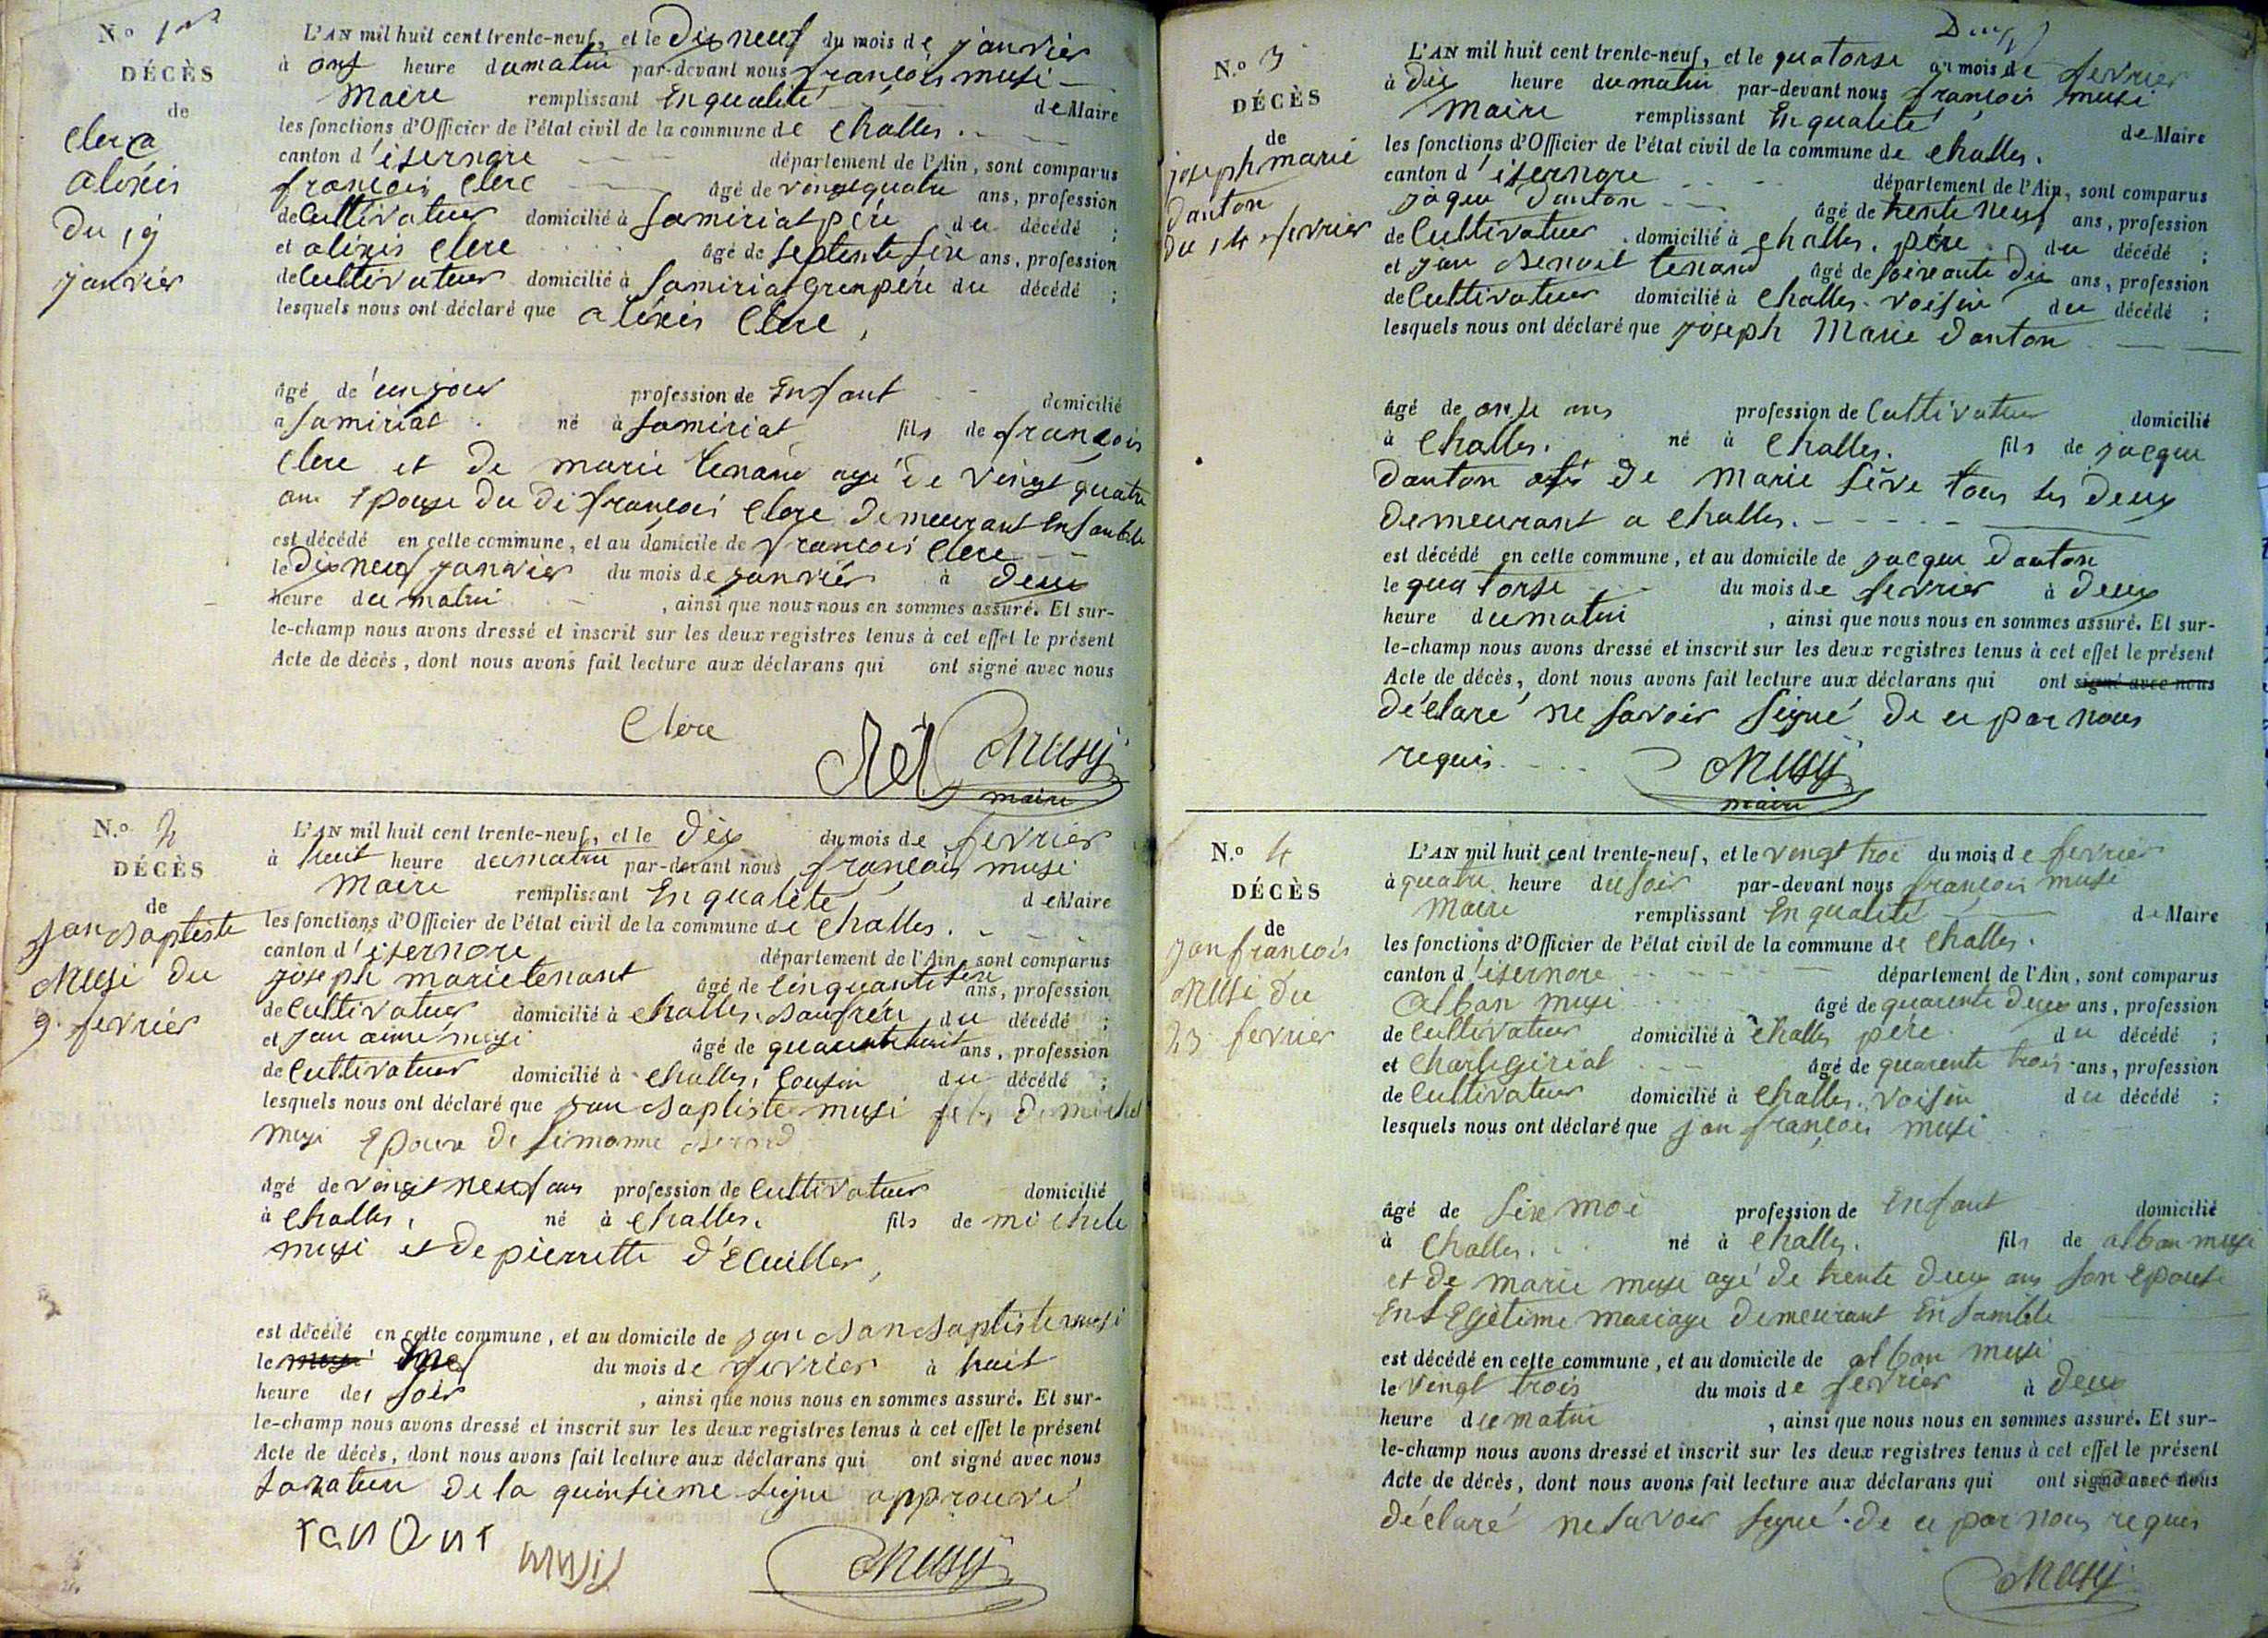 N.o 1er
DÉCÈS
de
Clerc
aléxis
du 19
janvier
L'AN mil huit cent trente-neuf, et le dix neuf du mois de janvier
à onse heure du matin par-devant nous francois musi
Maire remplissant En qualité de Maire
les fonctions d'Officier de l'état civil de la commune de challes.
canton d'isernore département de l'Ain, sont comparus
francois Clerc âgé de vingt quatre ans, profession
de Cultivateur domicilié à Samiriat pére du décédé ;
et aléxis Clerc âgé de septente sixe ans, profession
de Cultivateur domicilié à Samiriat granpére du décédé ;
lesquels nous ont déclaré que aléxis Clerc,
âgé de un jour profession de Enfant domicilié
a Samiriat né à Samiriat fils de francois
Clerc et de marie tenand agé de vingt quatre
ans Epouse du di francois Clerc demeurant Ensamble
est décédé en celle commune, et au domicile de francois Clerc
le dix neuf janvier du mois de janvier à deux
heure du matin , ainsi que nous nous en sommes assuré. Et sur-
le-champ nous avons dressé et inscrit sur les deux registres tenus à cet effet le présent
Acte de décès, dont nous avons fait lecture aux déclarans qui ont signé avec nous
Clerc Musy
maire
N.o 2
DÉCÈS
de
jan Baptiste
Musi du
9. fevrier
L'AN mil huit cent trente-neuf, et le dix du mois de fevrier
à huit heure du matin par-devant nous francois musi
Maire remplissant En qualité de Maire
les fonctions d'Officier de l'état civil de la commune de challes.
canton d'isernore département de l'Ain, sont comparus
joseph marie tenant âgé de cinquante sixe ans, profession
de Cultivateur domicilié à challes, Baufrére du décédé ;
et jan aimé musi âgé de quarente huit ans, profession
de Cultivateur domicilié à challes, Cousin du décédé ;
lesquels nous ont déclaré que jan Baptiste musi fils de michel
musi Epoux de Simonne
âgé de vingt neuf ans profession de Cultivateur domicilié
à challes, né à challes. fils de michele
musi et de pierrette d'Ecuiller,
est décédé en cette commune, et au domicile de jan Baptiste musi
le neuf du mois de fevrier à huit
heure de soir , ainsi que nous nous en sommes assuré. Et sur-
le-champ nous avons dressé et inscrit sur les deux registres tenus à cet effet le présent
Acte de décès, dont nous avons fait lecture aux déclarans qui ont signé avec nous
La rature de la quinsieme ligne approuvé
tenant musy Musy
Deux
N.o 3
DÉCÈS
de
joseph marie
danton
du 14 fevrier
L'AN mil huit cent trente-neuf, et le quatorse du mois de fevrier
à dix heure du matin par-devant nous francois musi
Maire remplissant En qualité de Maire
les fonctions d'Officier de l'état civil de la commune de challes.
canton d'isernore département de l'Ain, sont comparus
jaque danton âgé de trente neuf ans, profession
de Cultivateur domicilié à challes. pére du décédé ;
et jan Benoit tenand âgé de soixante dix ans, profession
de Cultivateur domicilié à challes. voisin du décédé ;
lesquels nous ont déclaré que joseph Marie danton
âgé de onse ans profession de Cultivateur domicilié
à challes. né à challes. fils de jacque
danton et de Marie Séve tous les deux
demeurant a challes.
est décédé en cette commune, et au domicile de jacque danton
le quatorse du mois de fevrier à deux
heure du matin , ainsi que nous nous en sommes assuré. Et sur-
le-champ nous avons dressé et inscrit sur les deux registres tenus à cet effet le présent
Acte de décès, dont nous avons fait lecture aux déclarans qui ont signé avec nous
déclaré ne savoir signé de ce par nous
requis
Musy
maire
N.o 4
DÉCÈS
de
jan francois
Musi du
23 fevrier
L'AN mil huit cent trente-neuf, et le vengt troi du mois de fevrier
à quatre heure du soir par-devant nous francois musi
Maire remplissant En qualité de Maire
les fonctions d'Officier de l'état civil de la commune de challes.
canton d'isernore département de l'Ain, sont comparus
Alban musi âgé de quarente deux ans, profession
de Cultivateur domicilié à challes pére du décédé ;
et Charle giriat âgé de quarente trois ans, profession
de Cultivateur domicilié à challes. voisin du décédé ;
lesquels nous ont déclaré que jan francois musi
âgé de sixe moi profession de Enfant domicilié
à challes. né à challes. fils de alban musi
et de marie musi agé de trente deux ans son Epouse
En Légétime mariage demeurant Ensamble
est décédé en cette commune, et au domicile de alban musi
le vingt trois du mois de fevrier à deux
heure du matin , ainsi que nous nous en sommes assuré. Et sur-
le-champ nous avons dressé et inscrit sur les deux registres tenus à cet effet le présent
Acte de décès, dont nous avons fait lecture aux déclarans qui ont signé avec nous
déclaré ne savoir signé de ce par nous requis
Musy